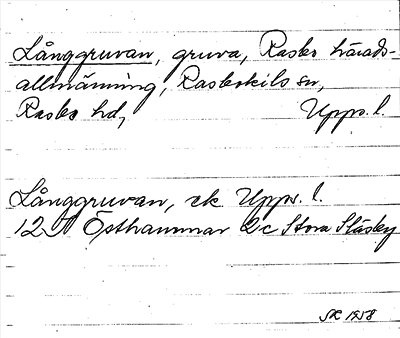 Långgruvan, gruva, Rasbo härads-
allmänning, Rasbokils sn,
Rasbo hd, Upps. l.
Långgruvan, ek Upps. l.
12I Östhammar 2c Stora Släsby
SK 1958